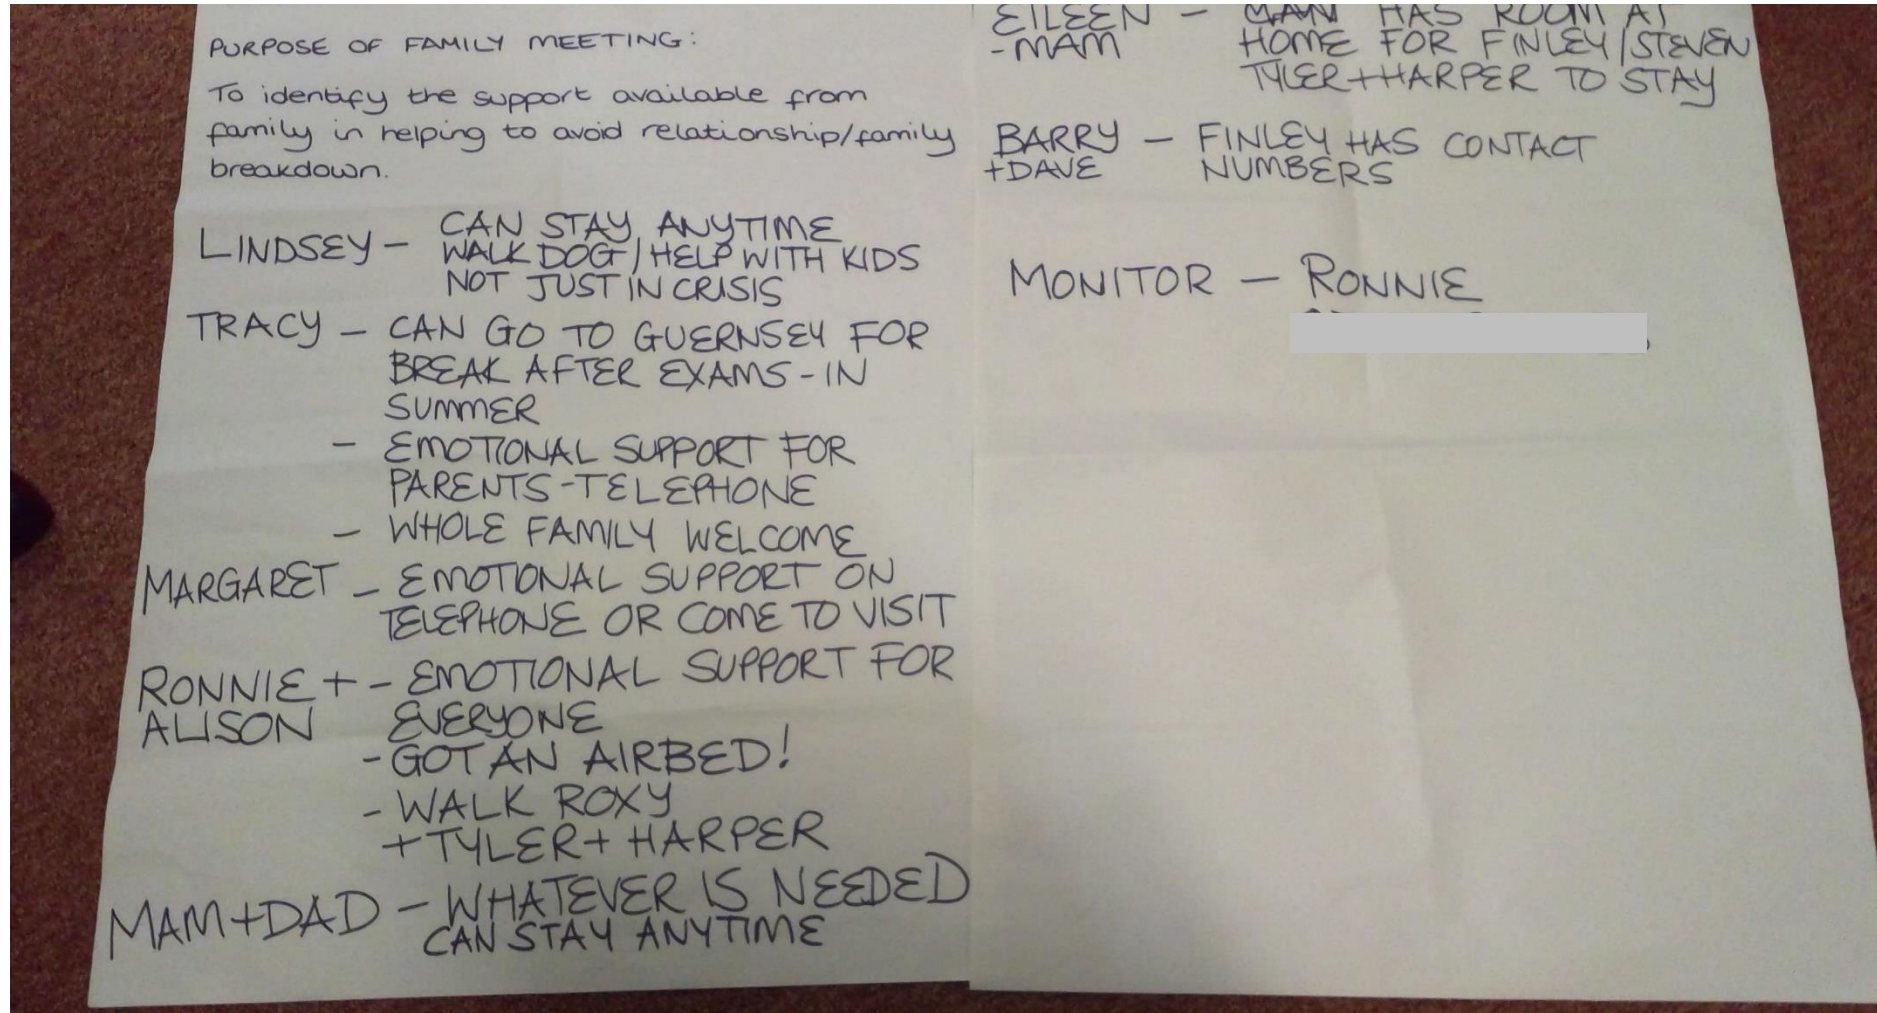 PURPOSE OF FAMILY MEETING:
To identify the support available from
family in helping to avoid relationship/family
breakdown.
LINDSEY - CAN STAY ANYTIME
WALK DOG/HELP WITH KIDS
NOT JUST IN CRISIS
TRACY - CAN GO TO GUERNSEY FOR
BREAK AFTER EXAMS - IN
SUMMER
- EMOTIONAL SUPPORT FOR
PARENTS - TELEPHONE
- WHOLE FAMILY WELCOME
MARGARET - EMOTIONAL SUPPORT ON
TELEPHONE OR COME TO VISIT
RONNIE + - EMOTIONAL SUPPORT FOR
ALISON EVERYONE
- GOT AN AIRBED!
- WALK ROXY
+ TYLER + HARPER
MAM + DAD - WHATEVER IS NEEDED
CAN STAY ANYTIME
EILEEN - HAS ROOM AT
- MAM HOME FOR FINLEY/STEVEN
TYLER + HARPER TO STAY
BARRY - FINLEY HAS CONTACT
+ DAVE NUMBERS
MONITOR - RONNIE